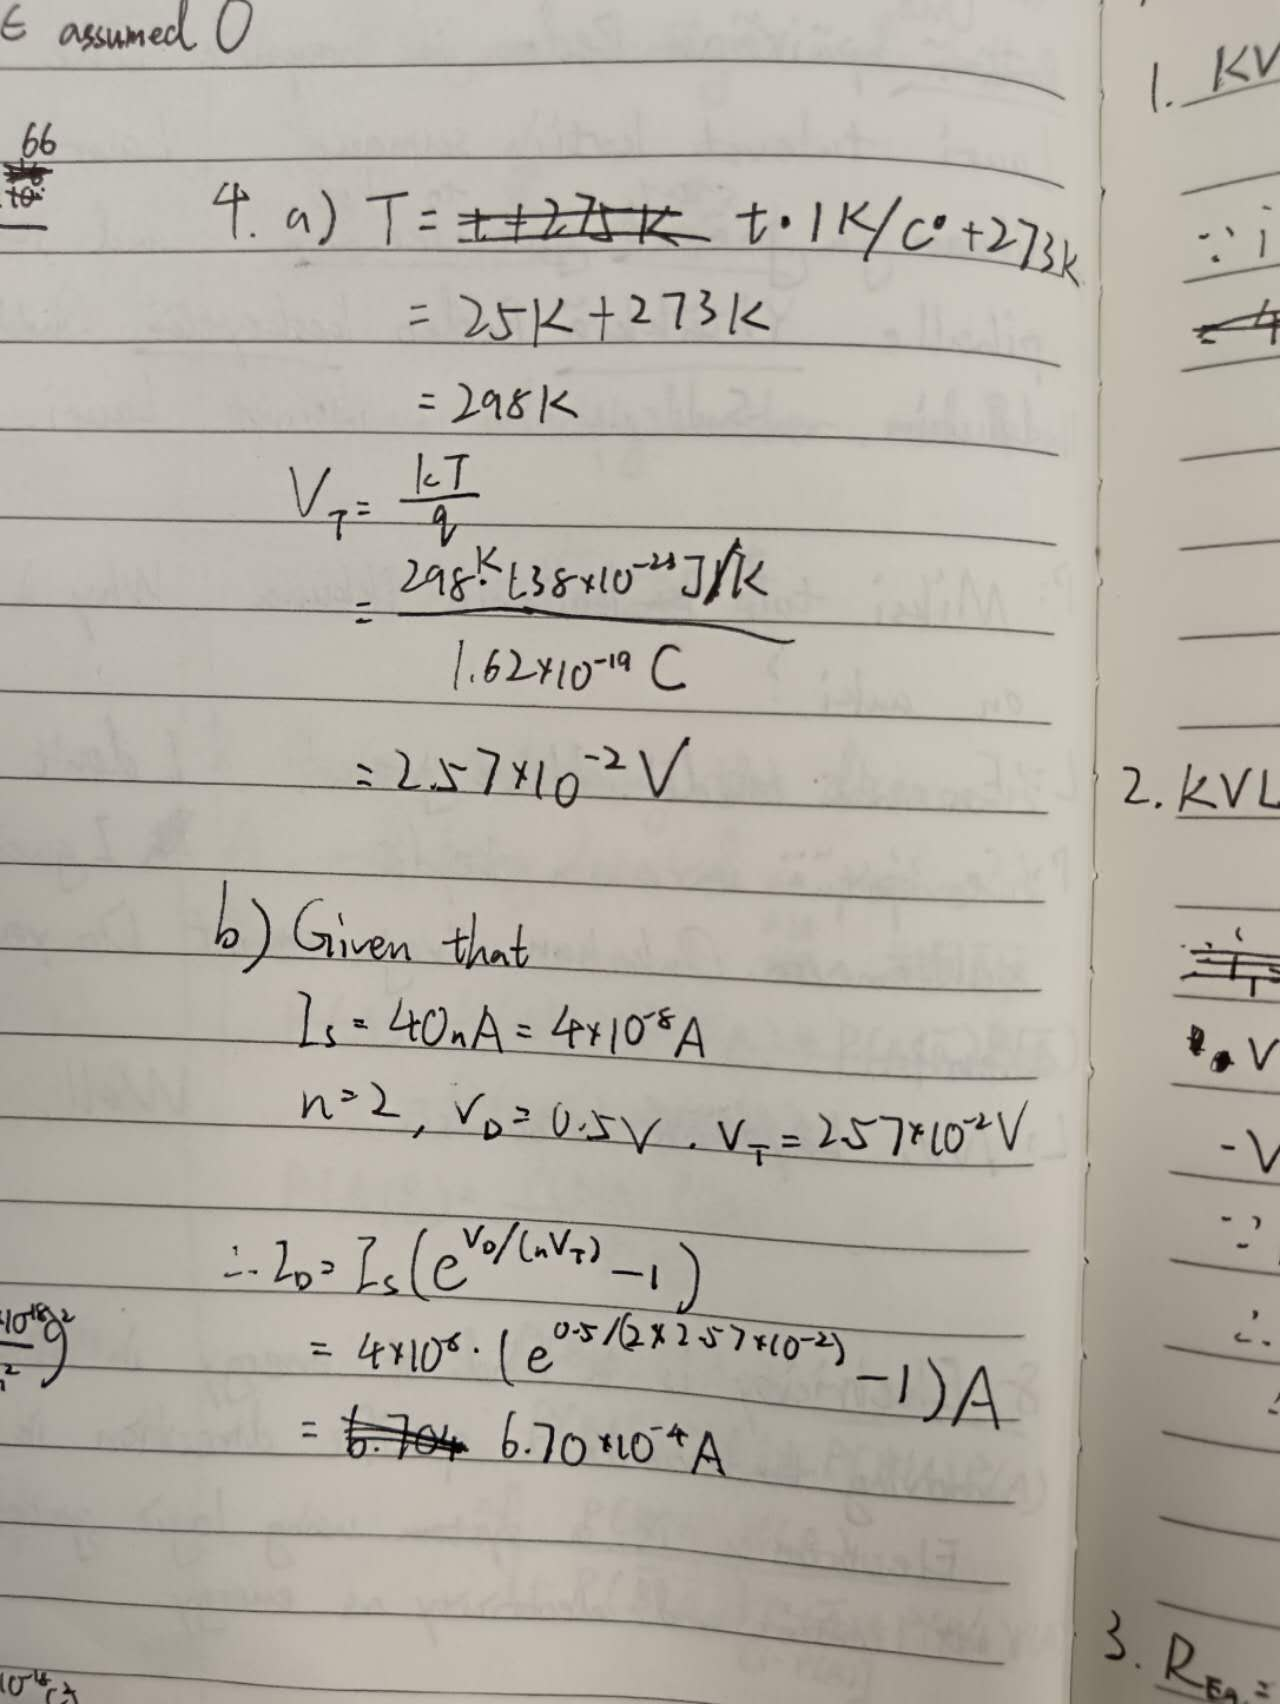 E assumed O
66
4. a) T = t · 1K/C° + 273K
= 25K + 273K
= 298K
V_T = kT/q
= 298K · 1.38×10^-23 J/K / 1.62×10^-19 C
= 2.57×10^-2 V
b) Given that
I_s = 40nA = 4×10^-8 A
n=2, V_D = 0.5V . V_T = 2.57×10^-2 V
∴ I_D = I_s (e^V_D/(nV_T) - 1)
= 4×10^-8 · (e^0.5/(2×2.57×10^-2) - 1) A
= 6.704 6.70×10^-4 A
1. KV
∵ i
2. KVL
V
-V
∵
∴
3. R_Eq =